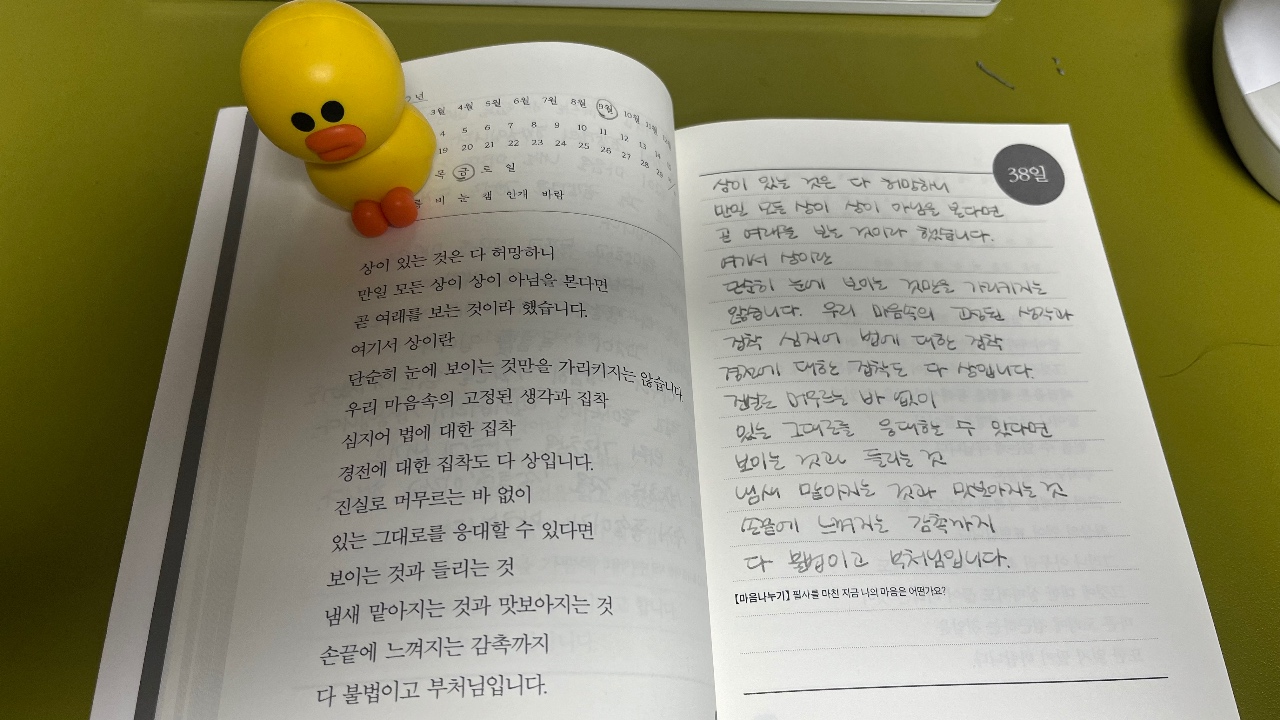 년
3월 4월 5월 6월 7월 8월 9월 10월 11월
4 5 6 7 8 9 10 11 12 13 14
19 20 21 22 23 24 25 26 27 28 29
목 금 토 일
비 눈 쌤 안개 바람
상이 있는 것은 다 허망하니
만일 모든 상이 상이 아님을 본다면
곧 여래를 보는 것이라 했습니다.
여기서 상이란
단순히 눈에 보이는 것만을 가리키지는 않습니다.
우리 마음속의 고정된 생각과 집착
심지어 법에 대한 집착
경전에 대한 집착도 다 상입니다.
진실로 머무르는 바 없이
있는 그대로를 응대할 수 있다면
보이는 것과 들리는 것
냄새 맡아지는 것과 맛보아지는 것
손끝에 느껴지는 감촉까지
다 불법이고 부처님입니다.
38일
상이 있는 것은 다 허망하니
만일 모든 상이 상이 아님을 본다면
곧 여래를 보는 것이라 했습니다.
여기서 상이란
단순히 눈에 보이는 것만을 가리키지는
않습니다. 우리 마음속의 고정된 생각과
집착 심지어 법에 대한 집착
경전에 대한 집착도 다 상입니다.
진실로 머무르는 바 없이
있는 그대로를 응대할 수 있다면
보이는 것과 들리는 것
냄새 맡아지는 것과 맛보아지는 것
손끝에 느껴지는 감촉까지
다 불법이고 부처님입니다.
[마음나누기] 필사를 마친 지금 너의 마음은 어떤가요?